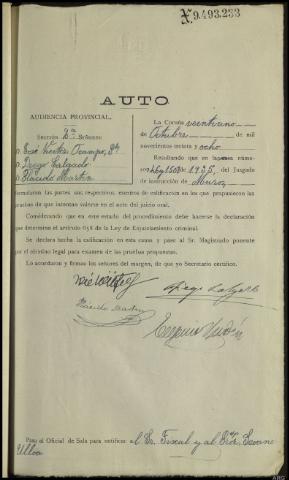 N.9.493.233
AUTO
AUDIENCIA PROVINCIAL
Sección 2ª Señores
D. José Ocampo, Pte
D. Diego Salgado
D. Plácido Martín
La Coruña veintiuno
de Octubre de mil
novecientos treinta y ocho
Resultando que en
1935, del Juzgado
de instrucción de Muros
formularon las partes sus respectivos escritos de calificación en los que propusieron las
pruebas de que intentan valerse en el acto del juicio oral.
Considerando que en este estado del procedimiento debe hacerse la declaración
que determina el artículo 658 de la Ley de Enjuiciamiento criminal.
Se declara hecha la calificación en esta causa y pase al Sr. Magistrado ponente
por el término legal para examen de las pruebas propuestas.
Lo acordaron y firman los señores del margen, de que yo Secretario certifico.
Diego Salgado
Plácido Martín
Pase al Oficial de Sala para notificar al Sr. Fiscal y al Pror. Seoane
Ulloa
ARG